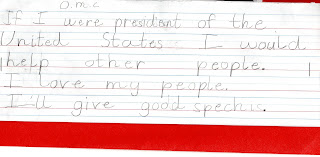 O.M.C
If I were president of the
United States I would
help other people.
I love my people.
I ill give good spechis.